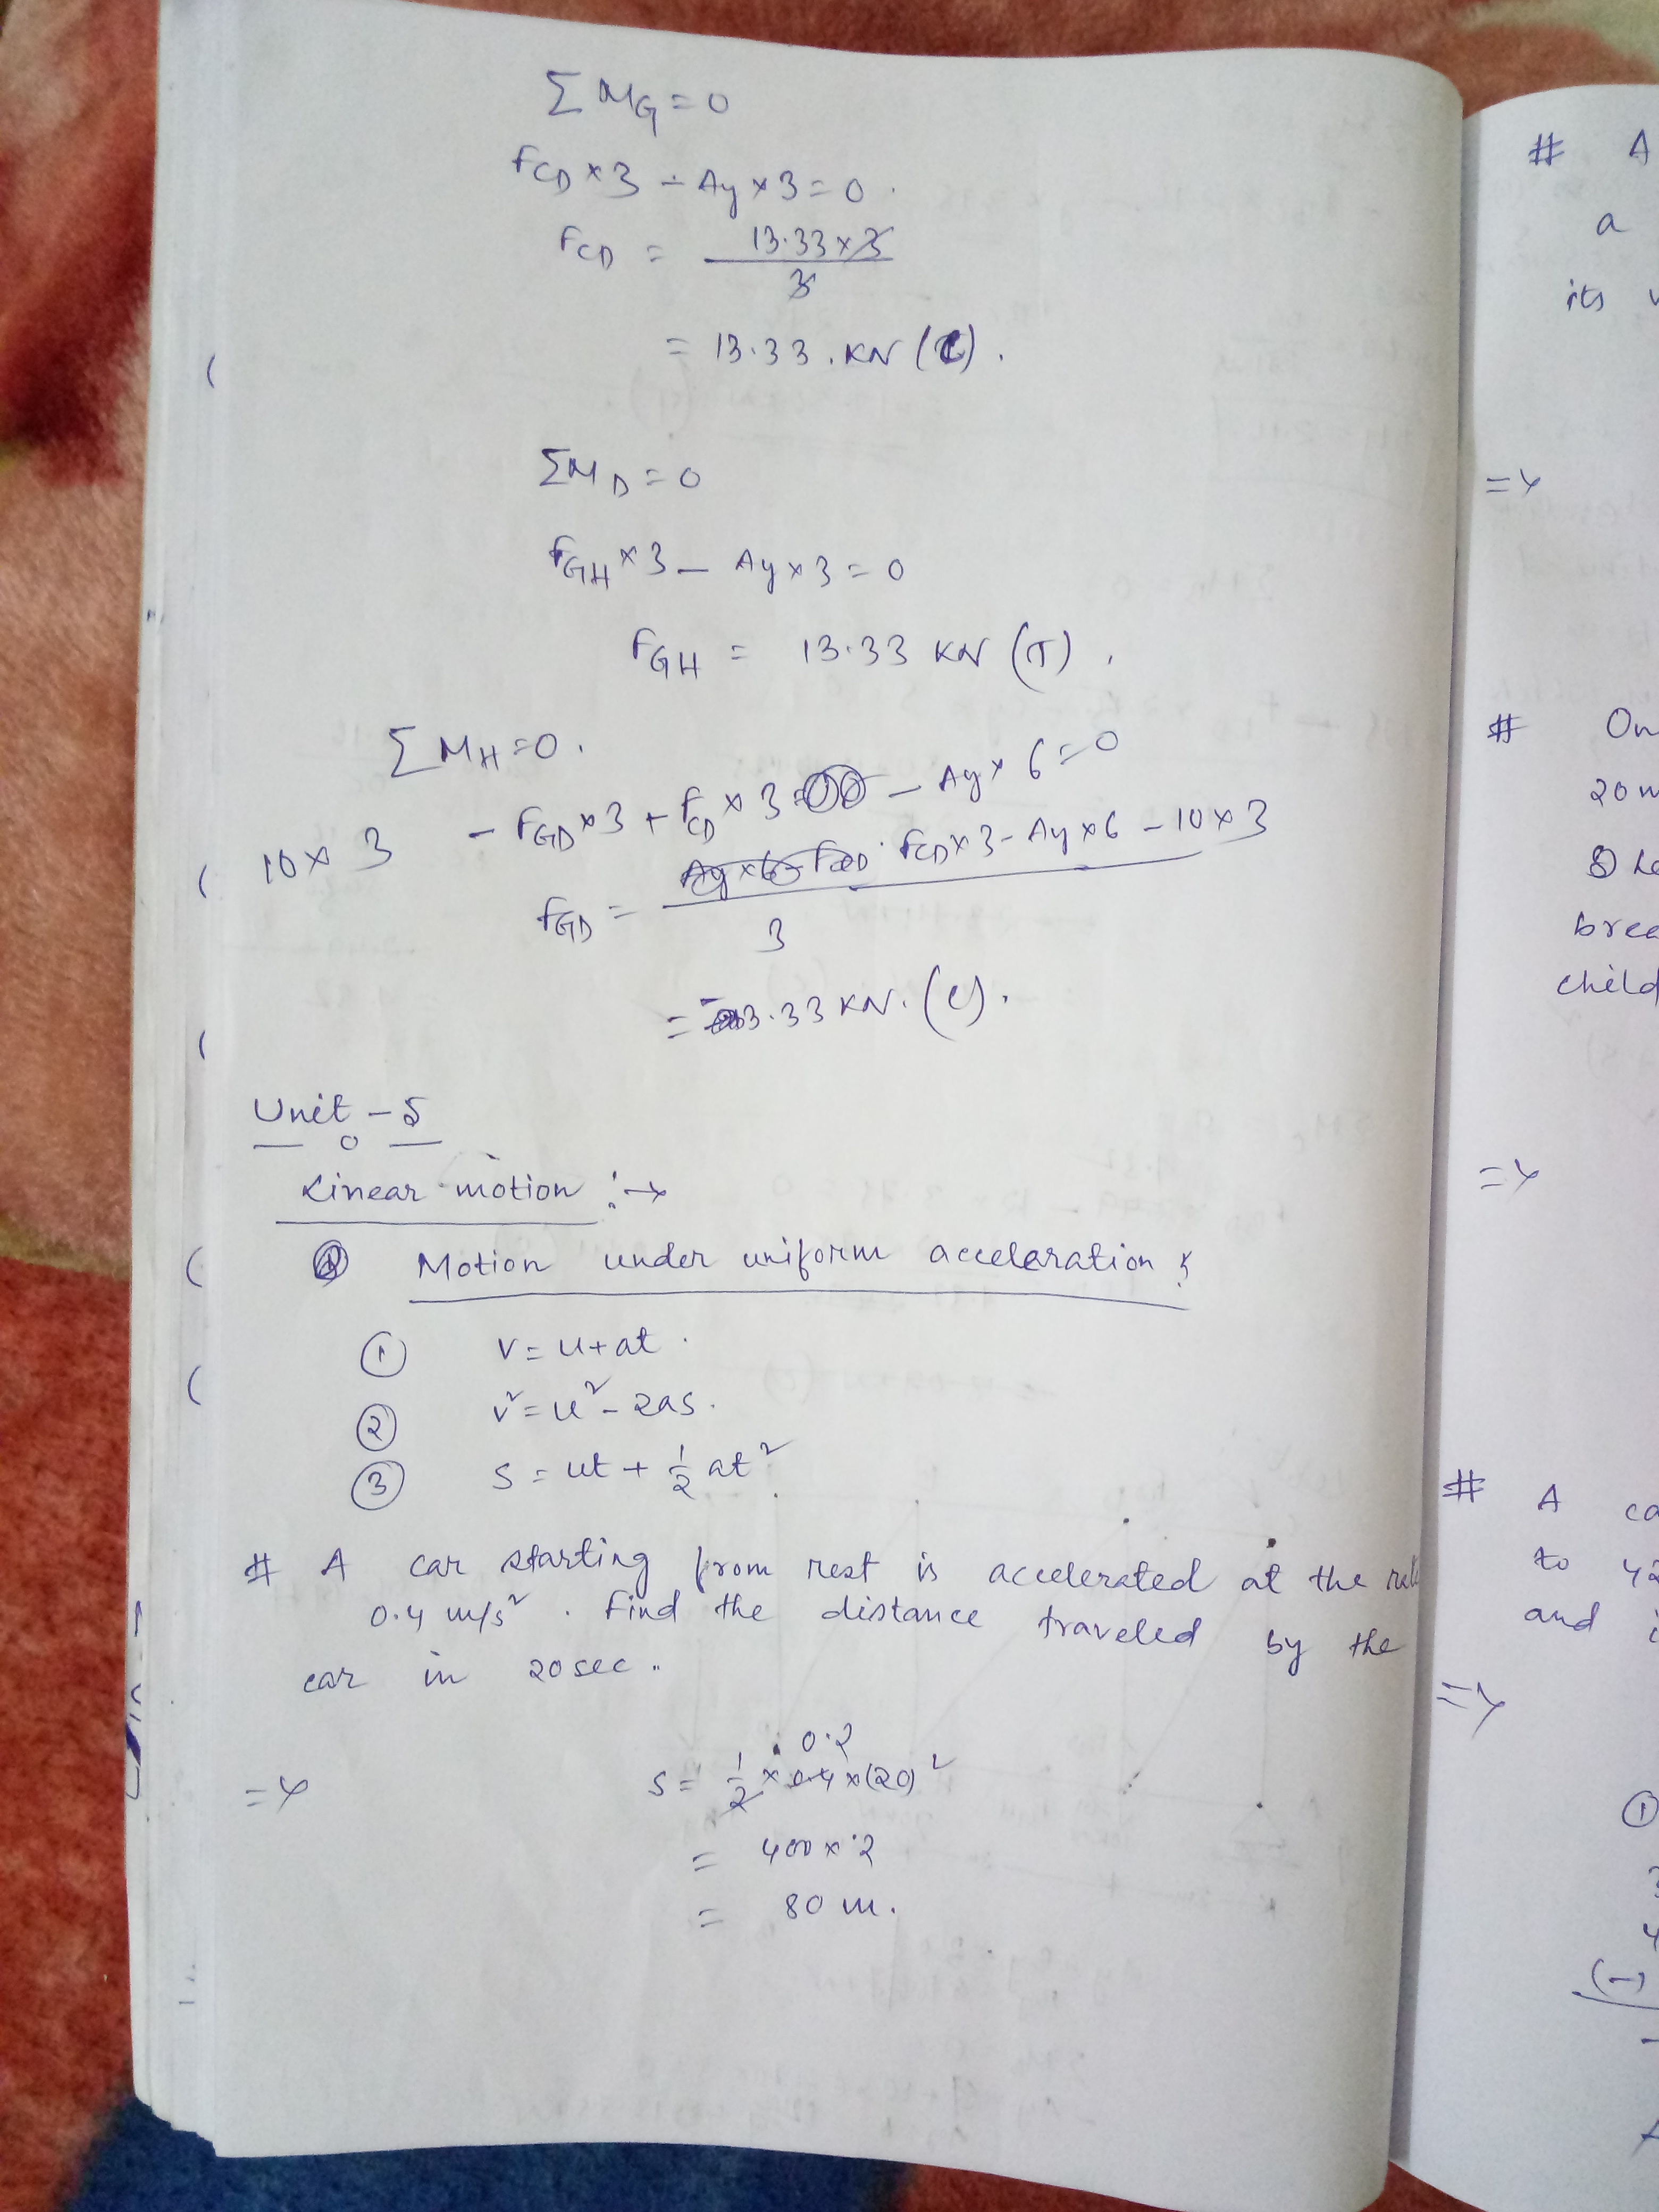 ΣM_G = 0
F_CD × 3 - Ay × 3 = 0.
F_CD = 13.33 × 3 / 3
= 13.33. KN (C).
ΣM_D = 0
F_GH × 3 - Ay × 3 = 0
F_GH = 13.33 KN (T).
ΣM_H = 0.
10 × 3 - F_GD × 3 + F_CD × 3 - Ay × 6 = 0
F_GD = F_CD × 3 - Ay × 6 - 10 × 3 / 3
3.33 KN. (C).
Unit - 5
Linear motion :→
Motion under uniform acceleration :
① v = u + at.
② v² = u² - 2as.
③ s = ut + ½ at²
# A car starting from rest is accelerated at the rate
0.4 m/s². Find the distance traveled by the
car in 20 sec.
0.2
=> s = ½ × 0.4 × (20)²
= 400 × .2
= 80 m.
# A
a
its
=>
# On
20
8
brea
child
=>
# A ca
to 42
and i
=>
①
3
4
(-)